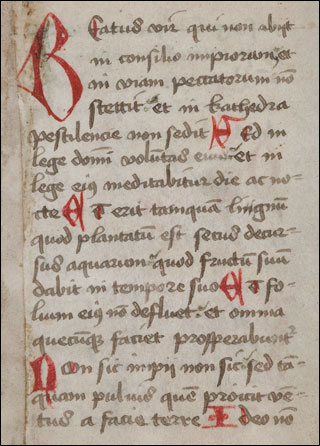 Beatus vir qui non abiit
in consilio impiorum et
in viam peccatorum nō
stettit et in kathedra
pestilencie non sedit Sed in
lege domī voluntas eius et in
lege eiꝰ meditabitur die ac no-
cte Et erit tamquam lingnū
quod plantatū est secus decur-
sus aquarum quod fructū suū
dabit in tempore suo Et fo-
lium eiꝰ nō defluet et omnia
quecūqꝫ faciet prosperabuntʳ
Non sic impii non sic sed tā-
quam puluis quē proicit ven-
tus a facie terre Ideo nō